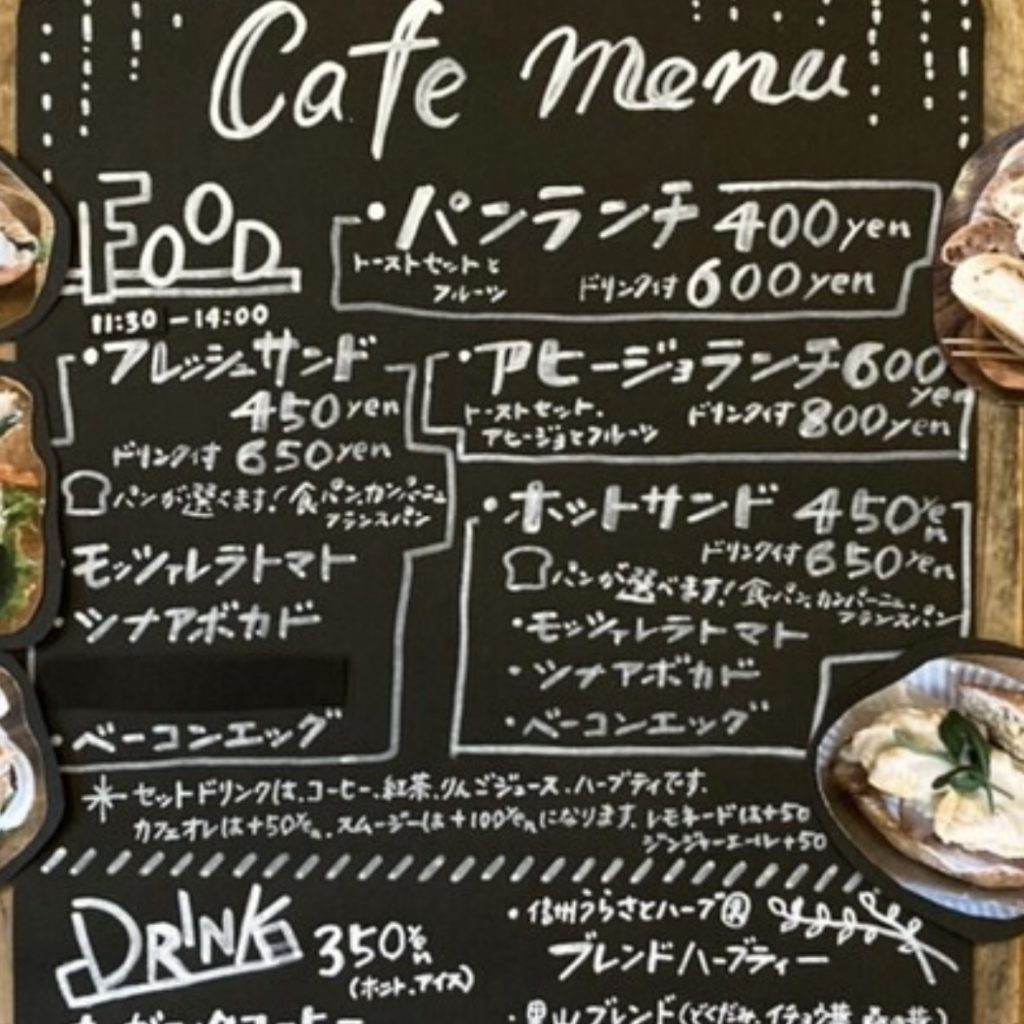 Cafe menu
FOOD
11:30 - 14:00
・パンランチ 400yen
トーストセットと
フルーツ
ドリンク付 600yen
・フレッシュサンド
450yen
ドリンク付 650yen
パンが選べます!食パン、カンパーニュ
フランスパン
モッツァレラトマト
・ツナアボカド
・ベーコンエッグ
・アヒージョランチ600
yen
トーストセット、
アヒージョとフルーツ
ドリンク付 800yen
・ホットサンド 450yen
ドリンク付 650yen
パンが選べます!食パン、カンパーニュ、
フランスパン
・モッツァレラトマト
・ツナアボカド
・ベーコンエッグ
＊セットドリンクは、コーヒー、紅茶、りんごジュース、ハーブティです。
カフェオレは+50yen、スムージーは+100yenになります。レモネードは+50
ジンジャーエール+50
DRINK
350yen
(ホット、アイス)
・信州うらさとハーブ園
ブレンドハーブティー
・里山ブレンド(どくだみ、イチョウ葉